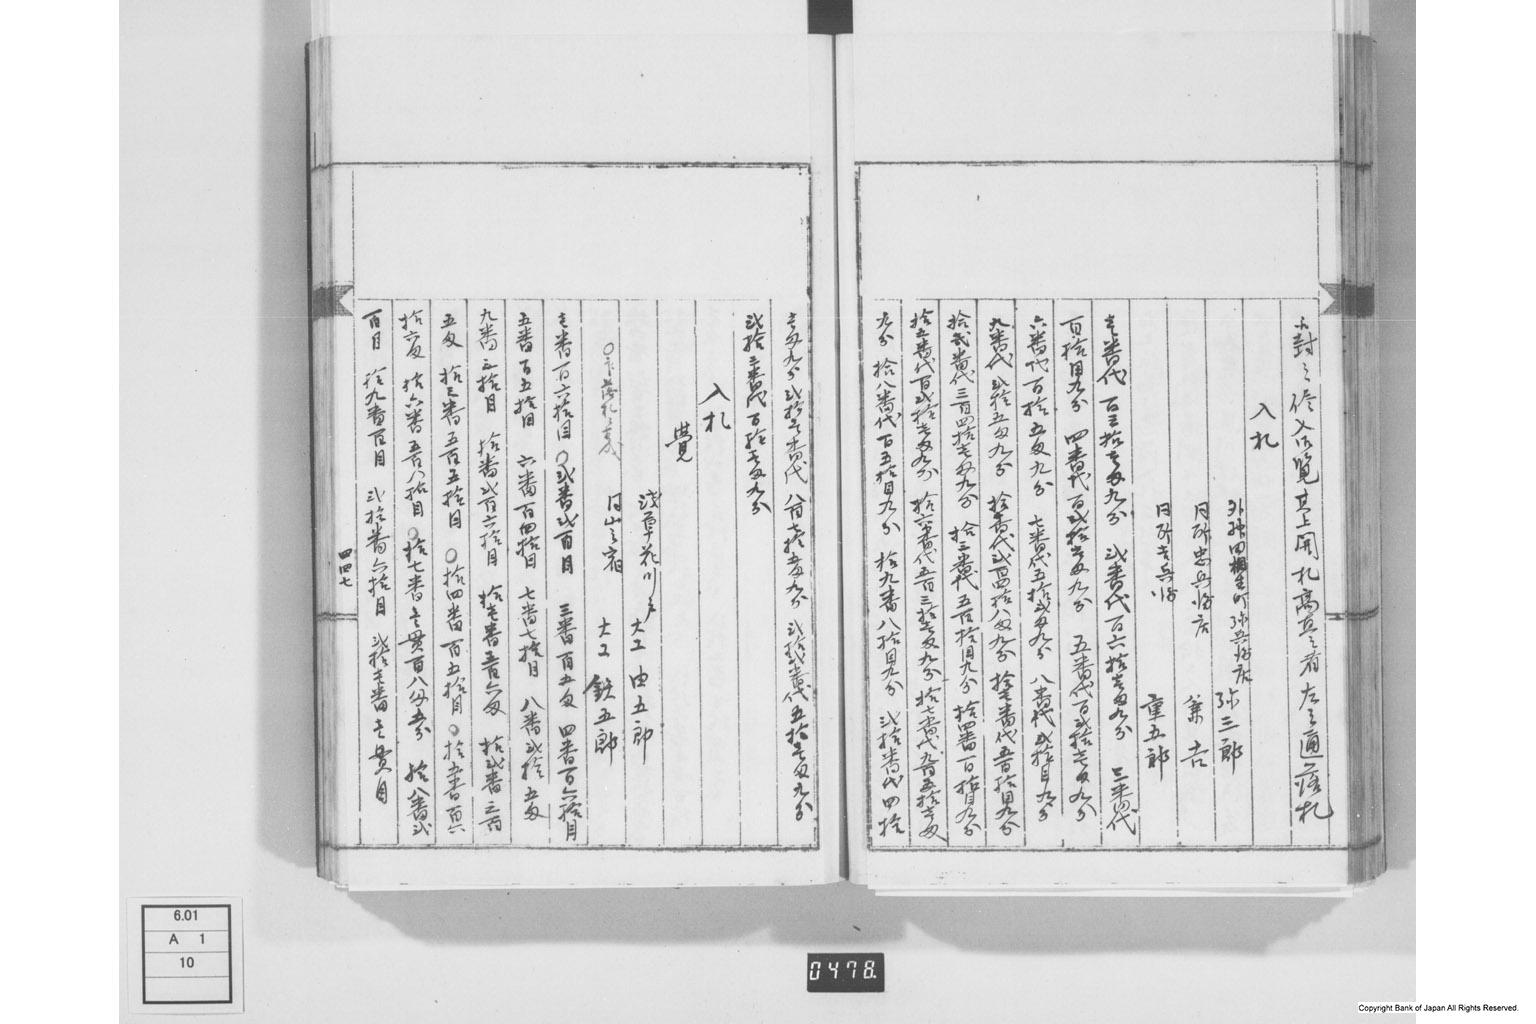 封之儘入御覧其上開札高直之者左之通落札
入札
外神田相生町弥兵衛店 弥三郎
同所忠兵衛店 兼吉
同所吉兵衛 重五郎
壱番代 百三拾壱匁九分 弐番代百六拾壱匁九分 三番代
百拾目九分 四番代百弐拾壱匁九分 五番代百弐拾壱匁九分
六番代百拾五匁九分 七番代五拾弐匁九分 八番代弐拾目九分
九番代弐拾五匁九分 拾番代弐百四拾八匁九分 拾壱番代五百拾目九分
拾弐番代三百四拾壱匁九分 拾三番代五百拾目九分 拾四番百拾目九分
拾五番代百弐拾壱匁九分 拾六番代五百三拾壱匁九分 拾七番代九百五拾壱匁
九分 拾八番代百五拾目九分 拾九番八拾目九分 弐拾番代四拾
壱匁九分 弐拾壱番代八百七拾五匁九分 弐拾弐番代五拾壱匁九分
弐拾三番代百拾壱匁九分
入札
覚
浅草花川戸 大工 由五郎
同山之宿 大工 鉄五郎
○下落札之成
壱番百六拾目 ○弐番弐百目 三番百五匁 四番百六拾目
五番百五拾目 六番百四拾目 七番七拾目 八番弐拾五匁
九番三拾目 拾番弐百六拾目 拾壱番五百六匁 拾弐番三百
五匁 拾三番五百五拾目 ○拾四番百五拾目 ○拾五番百六
拾六匁 拾六番五百八拾目 ○拾七番壱貫百八匁五分 拾八番弐
百目 拾九番百目 弐拾番六拾目 弐拾壱番壱貫目
四四七
6.01
A 1
10
0478.
Copyright Bank of Japan All Rights Reserved.